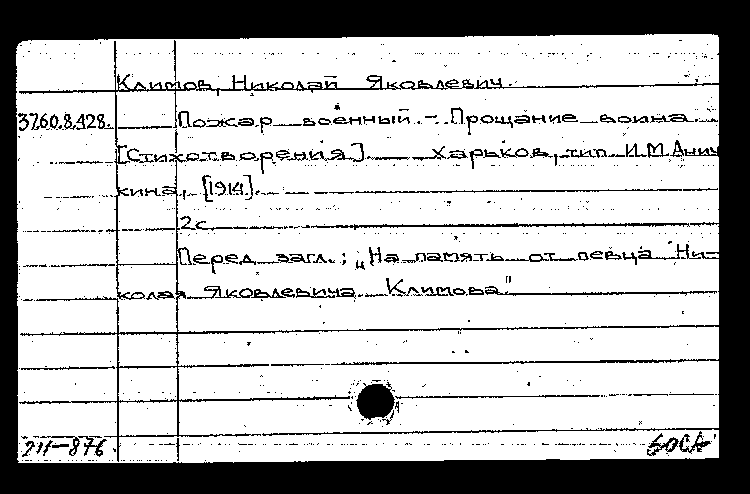 Климов, Николай Яковлевич.
37.60.8.428. Пожар военный. – Прощание воина
[Стихотворения]. Харьков, тип. И.М.Анич
кина, [1914].
2с.
Перед загл.: „На память от певца Ни-
колая Яковлевича Климова"
711–876.